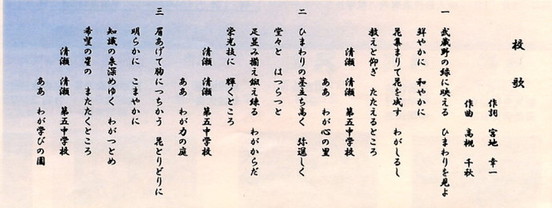 校歌
作詞 宮地 幸一
作曲 高槻 千秋
一 武蔵野の緑に映える ひまわりを見よ
鮮やかに 和やかに
花集まりて花を成す わがしるし
教えと仰ぎ たたえるところ
清瀬 清瀬 第五中学校
ああ わが心の里
二 ひまわりの茎立ち高く 弥逞しく
堂々と はつらつと
足並み揃え鍛え練る わがからだ
栄光枝に 輝くところ
清瀬 清瀬 第五中学校
ああ わが力の庭
三 眉あげて胸につちかう 花とりどりに
明らかに こまやかに
知識の泉深めゆく わがつとめ
希望の星の またたくところ
清瀬 清瀬 第五中学校
ああ わが学びの園